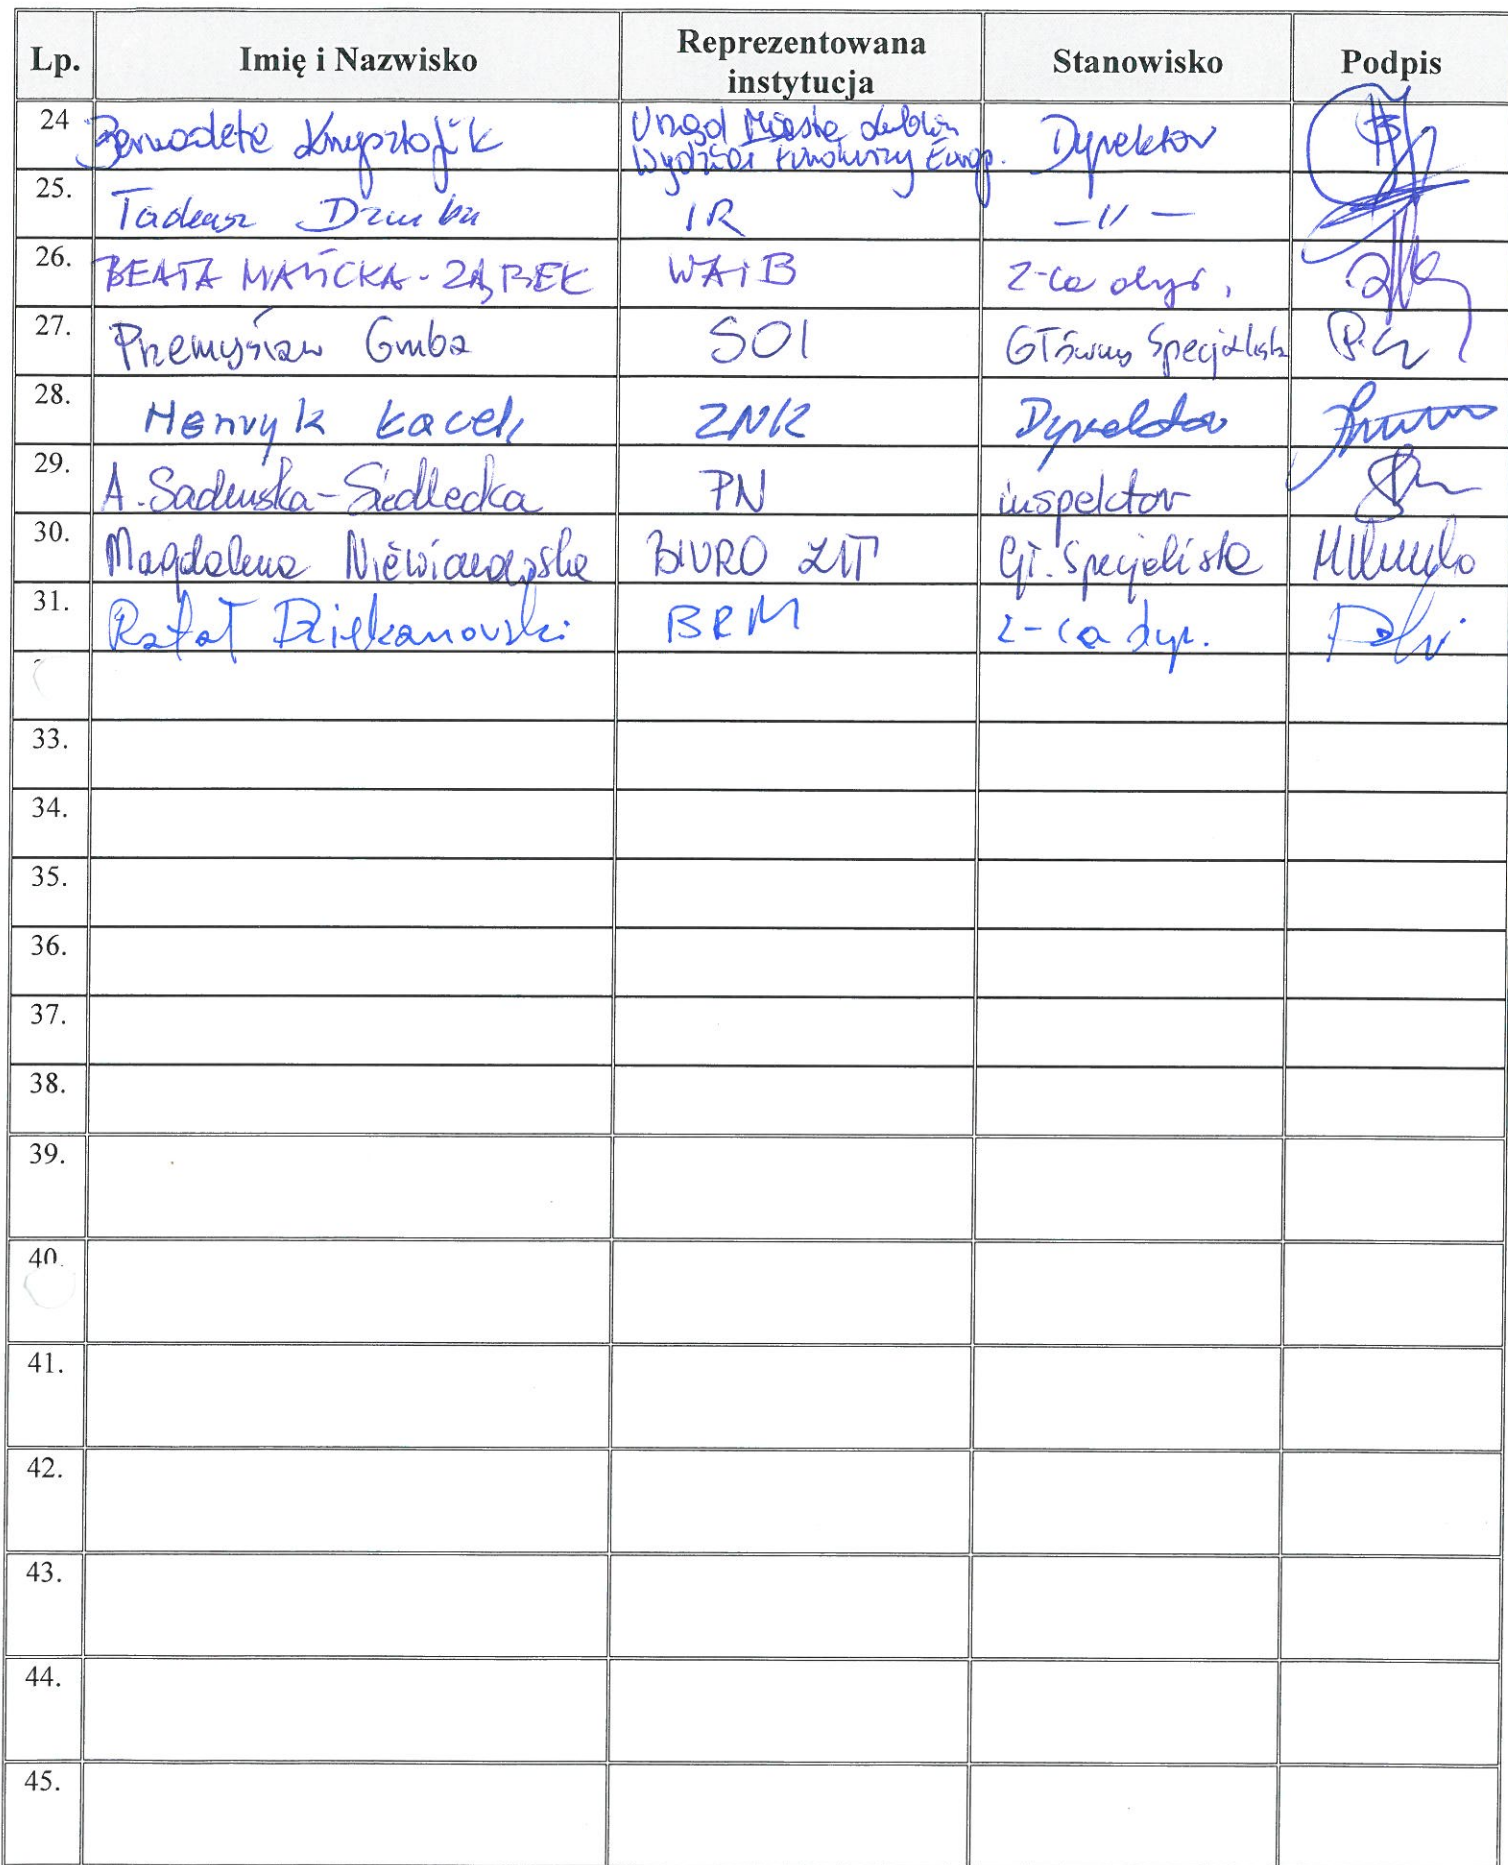 Lp. Imię i Nazwisko Reprezentowana instytucja Stanowisko Podpis
24 Bernadeta Krzysztofik Urząd Miasta Lublin Dyrektor
Wydział Funduszy Europ.
25. Tadeusz Dziuba IR —//—
26. BEATA MAŃCKA-ZĄBEK WAiB Z-ca dyr.
27. Przemysław Gruba SOI Główny Specjalista
28. Henryk Łacek ZNK Dyrektor
29. A. Sadurska-Siedlecka PN inspektor
30. Magdalena BIURO ZIT Gł. Specjalista
31. Rafał Dziekanowski BRM z-ca dyr.
33.
34.
35.
36.
37.
38.
39.
40.
41.
42.
43.
44.
45.